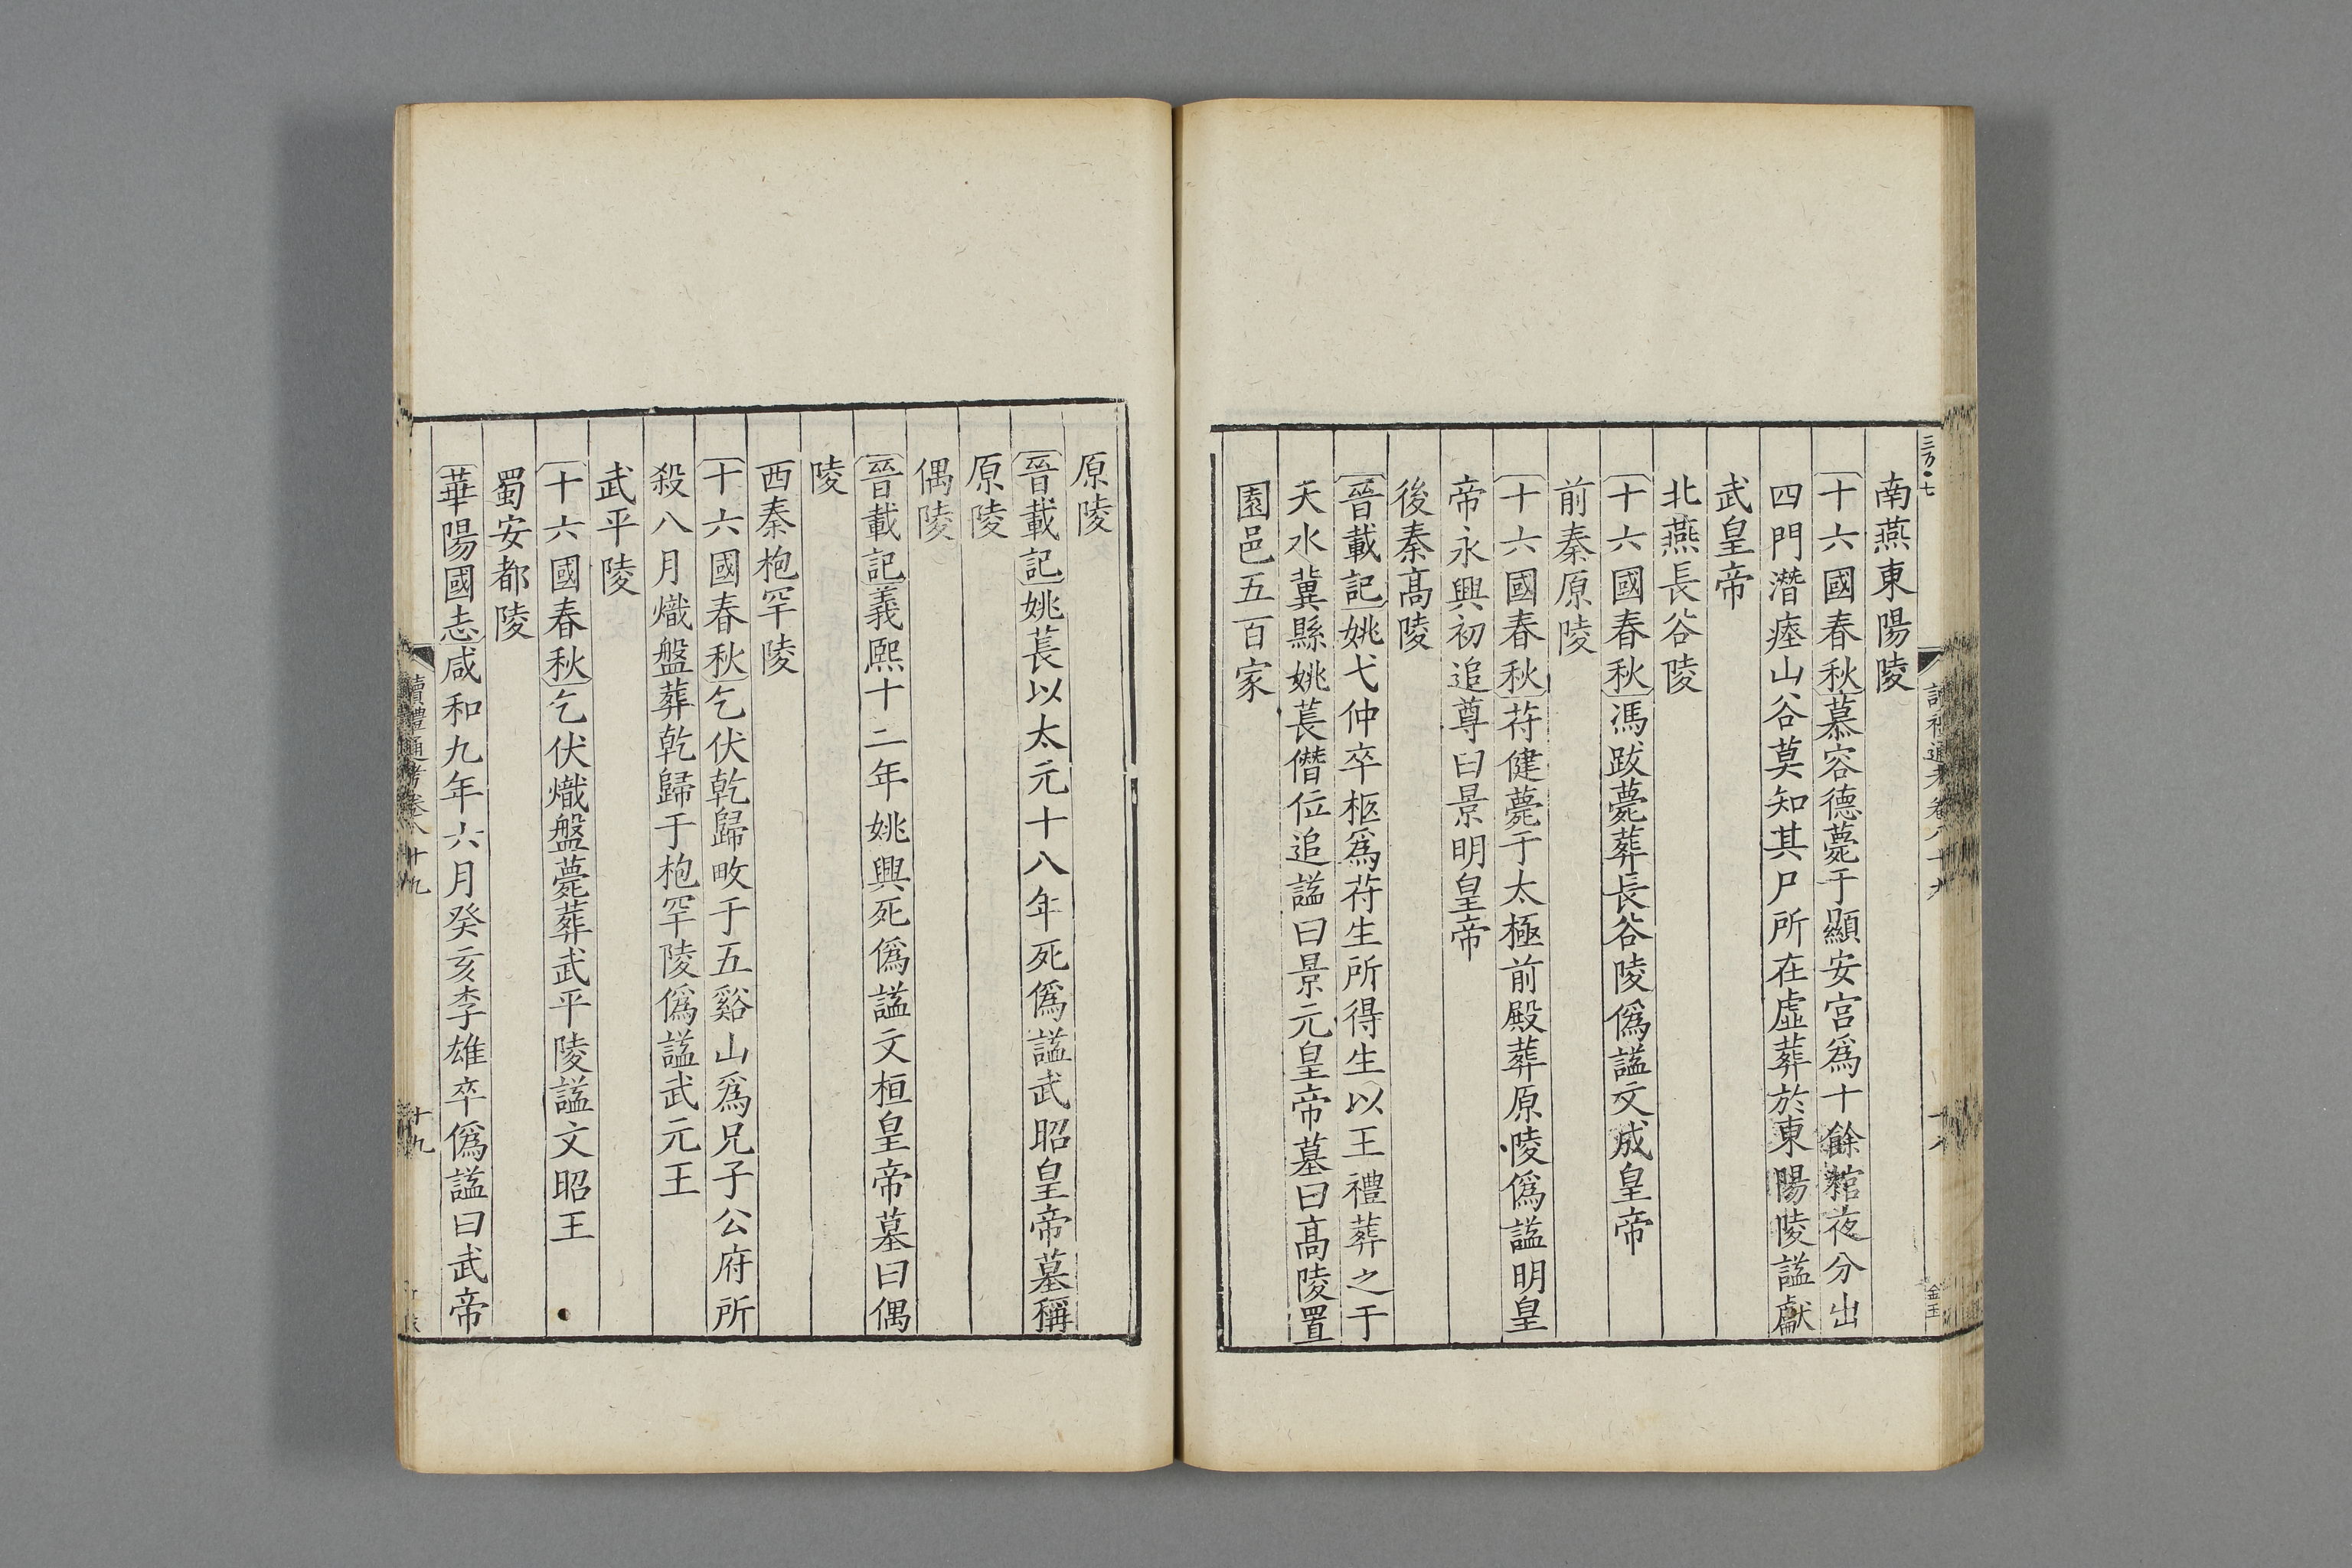 南燕東陽陵
十六國春秋慕容德薨于顯安宮爲十餘棺夜分出
四門潛瘞山谷莫知其尸所在虛葬於東陽陵謚獻
武皇帝
北燕長谷陵
十六國春秋馮跋薨葬長谷陵僞謚文成皇帝
前秦原陵
十六國春秋苻健薨于太極前殿葬原陵僞謚明皇
帝永興初追尊曰景明皇帝
後秦高陵
晉載記姚弋仲卒柩爲苻生所得生以王禮葬之于
天水冀縣姚萇僭位追謚曰景元皇帝墓曰高陵置
園邑五百家
原陵
晉載記姚萇以太元十八年死僞謚武昭皇帝墓稱
原陵
偶陵
晉載記義熙十二年姚興死僞謚文桓皇帝墓曰偶
陵
西秦枹罕陵
十六國春秋乞伏乾歸畋于五谿山爲兄子公府所
殺八月熾盤葬乾歸于枹罕陵僞謚武元王
武平陵
十六國春秋乞伏熾盤薨葬武平陵謚文昭王
蜀安都陵
華陽國志咸和九年六月癸亥李雄卒僞謚曰武帝
讀禮通考卷八十九
十九